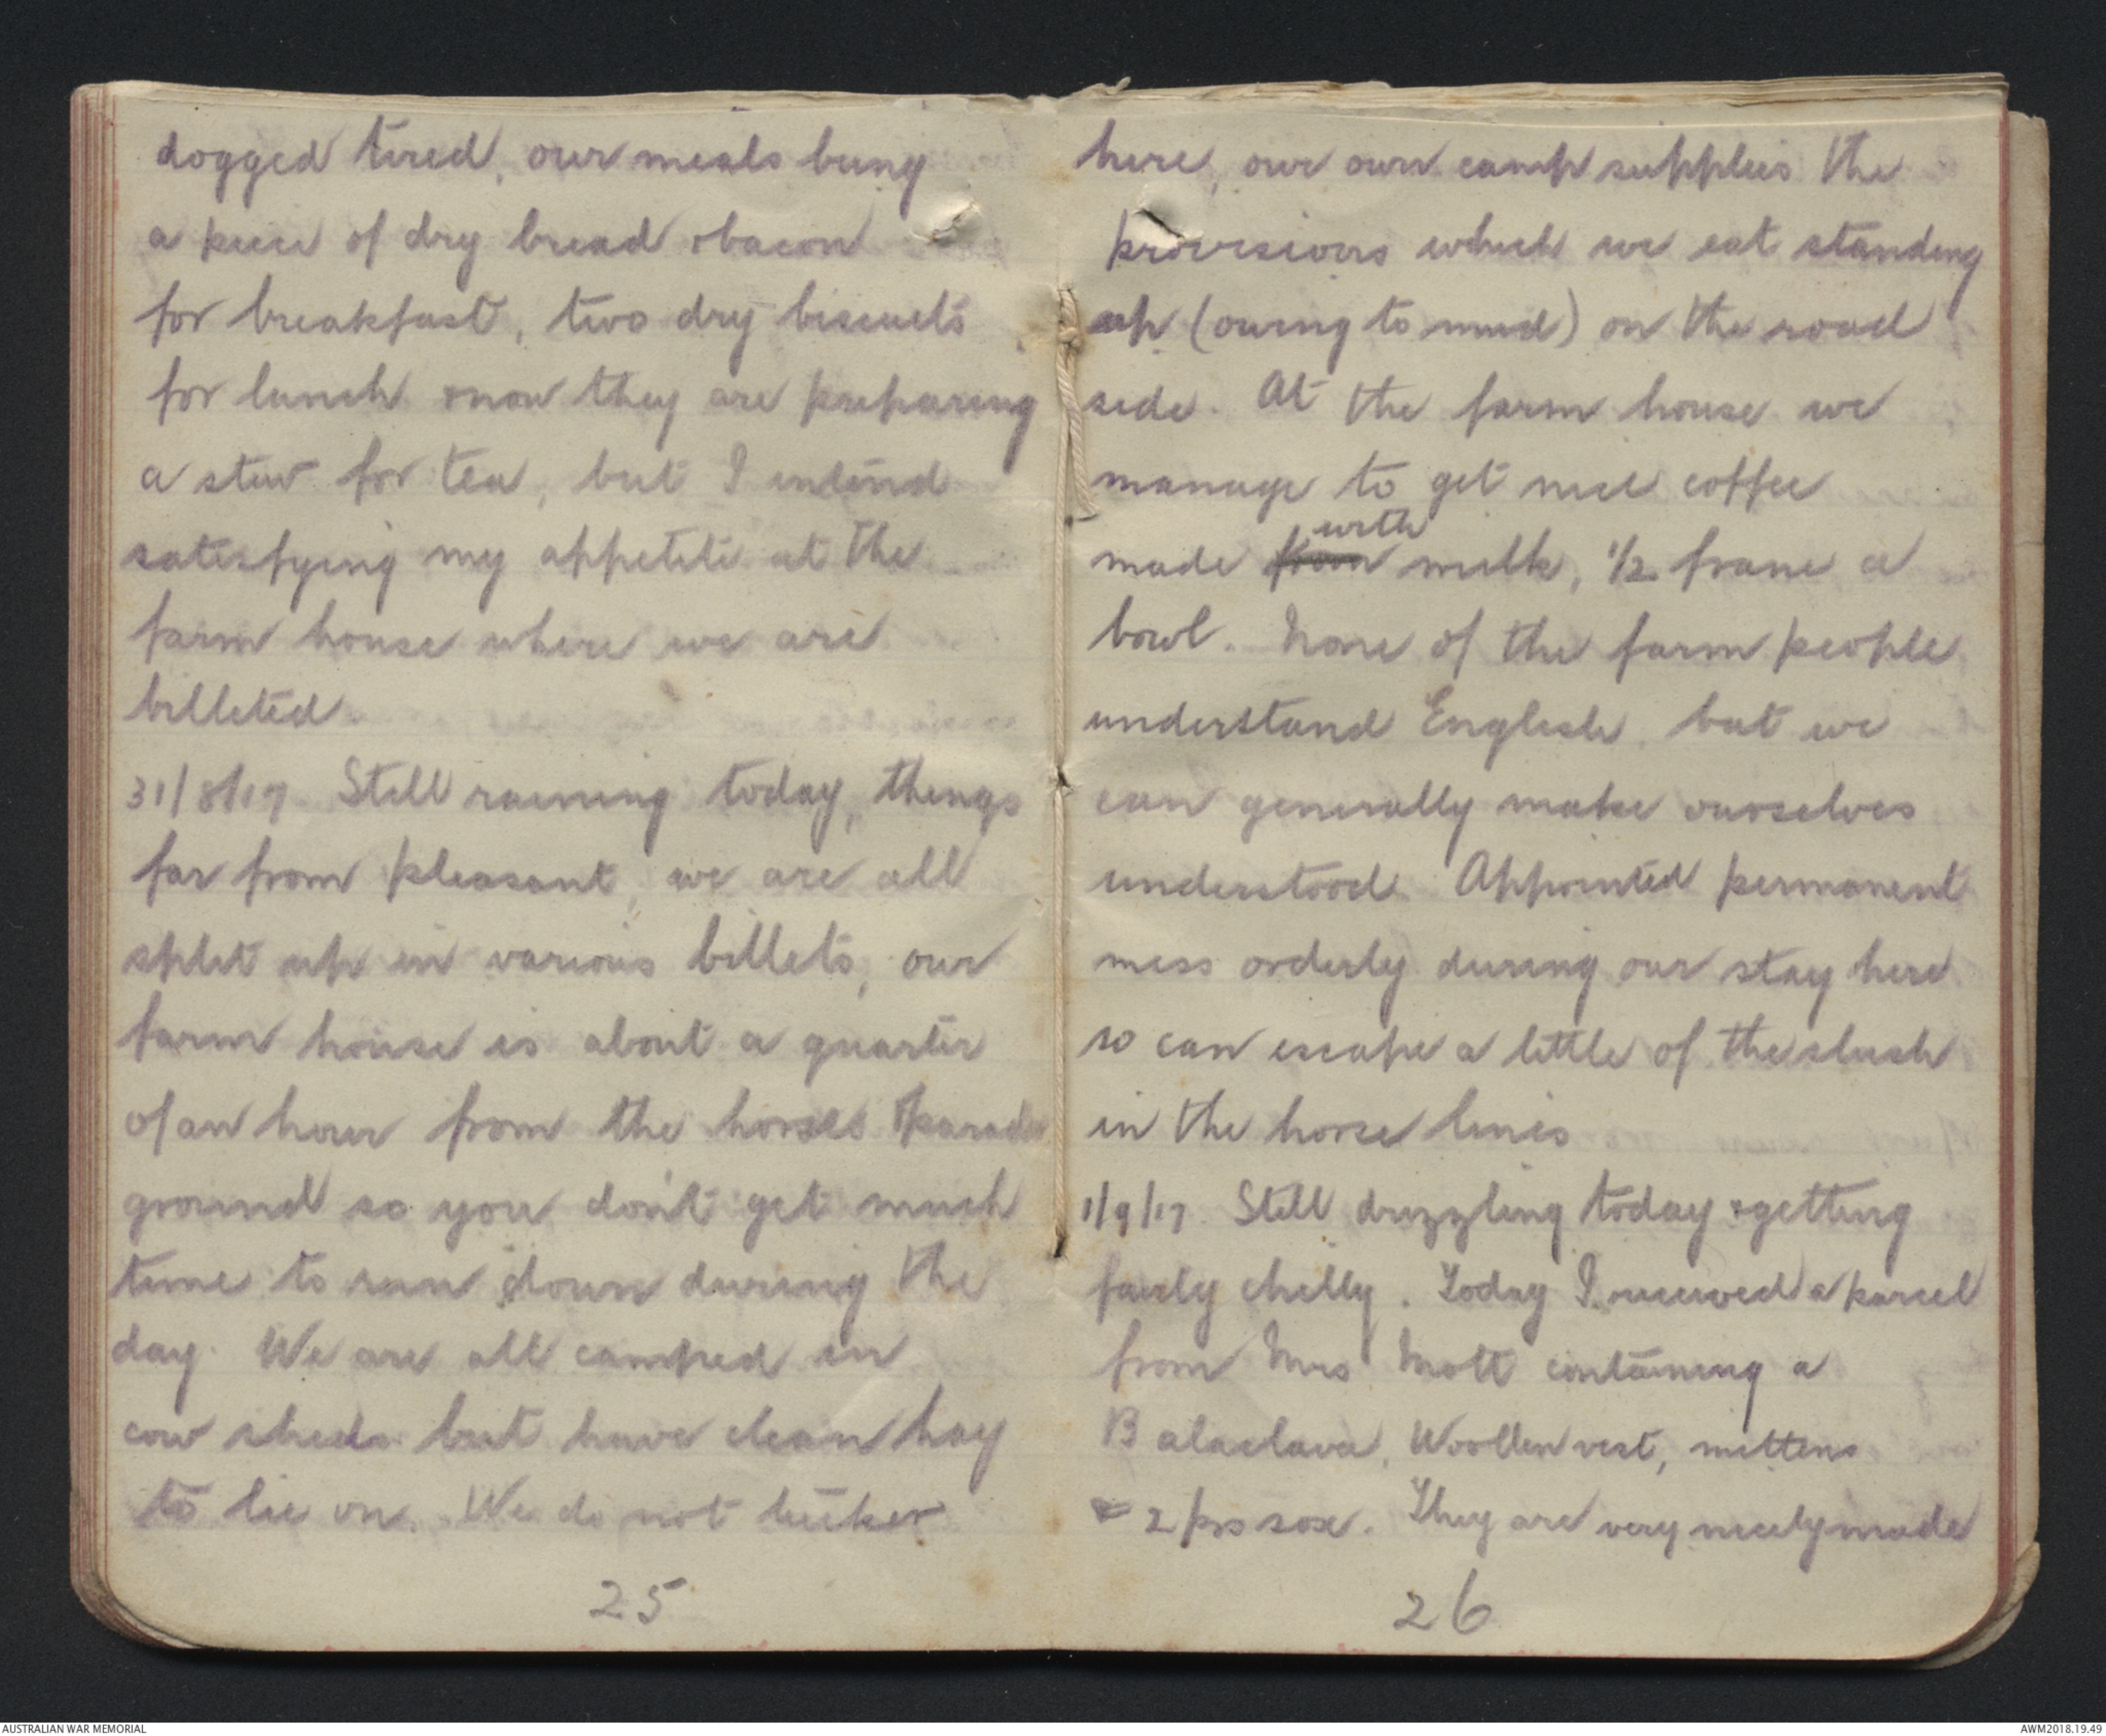 dogged tired, our meals being
a piece of dry bread & bacon
for breakfast, two dry biscuits
for lunch & now they are preparing
a stew for tea, but I intend
satisfying my appetite at the
farm house where we are
billeted
31/8/17. Still raining today, things
far from pleasant, we are all
split up in various billets, our
farm house is about a quarter
of an hour from the horses & parade
ground so you don't get much
time to run down during the
day. We are all camped in
cow sheds but have clean hay
to lie on. We do not
25
here, our own camp supplies the
provisions which we eat standing
up (owing to mud) on the road
side. At the farm house we
manage to get nice coffee
made from with milk, 1/2 franc a
bowl. None of the farm people
understand English, but we
can generally make ourselves
understood. Appointed permanent
mess orderly during our stay here
so can escape a little of the slush
in the horse lines
1/9/17. Still drizzling today & getting
fairly chilly. Today I received a parcel
from Mrs Mott containing a
Balaclava, Woollen vest, mittens
& 2 prs sox. They are very nicely made
26
AUSTRALIAN WAR MEMORIAL
AWM2018.19.49